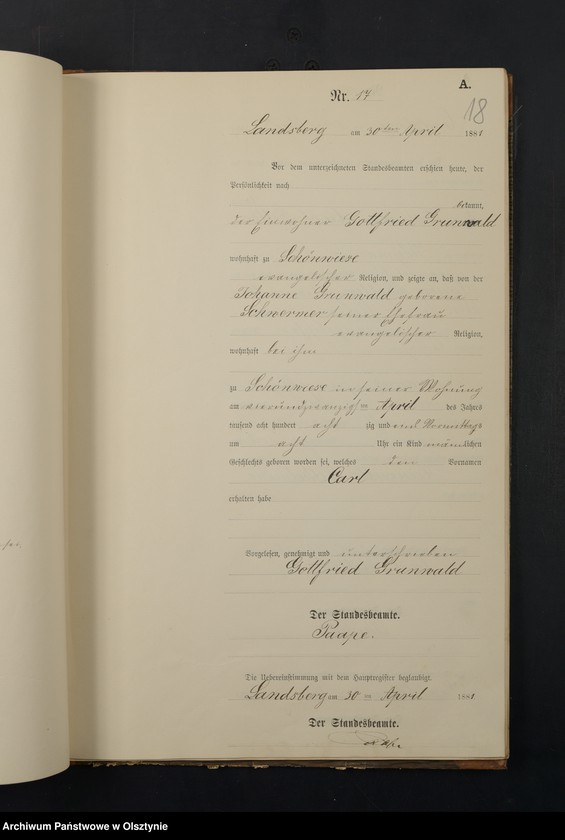 A.
Nr. 17
18
Landsberg am 30ten April 1881
Vor dem unterzeichneten Standesbeamten erschien heute, der
Persönlichkeit nach
bekannt,
der Einwohner Gottfried Grunwald
wohnhaft zu Schönwiese
evangelischer Religion, und zeigte an, daß von der
Johanne Grunwald geborene
Schwermer seiner Ehefrau
evangelischer Religion,
wohnhaft bei ihm
zu Schönwiese in seiner Wohnung
am vierundzwanzigsten April des Jahres
tausend acht hundert acht zig und eins Vormittags
um acht Uhr ein Kind männlichen
Geschlechts geboren worden sei, welches den Vornamen
Carl
erhalten habe
Vorgelesen, genehmigt und unterschrieben
Gottfried Grunwald
Der Standesbeamte.
Paape.
Die Uebereinstimmung mit dem Hauptregister beglaubigt.
Landsberg am 30 ten April 1881
Der Standesbeamte.
Archiwum Państwowe w Olsztynie